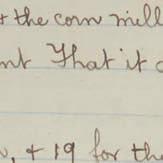 the corn mill
That it
& 19 for th